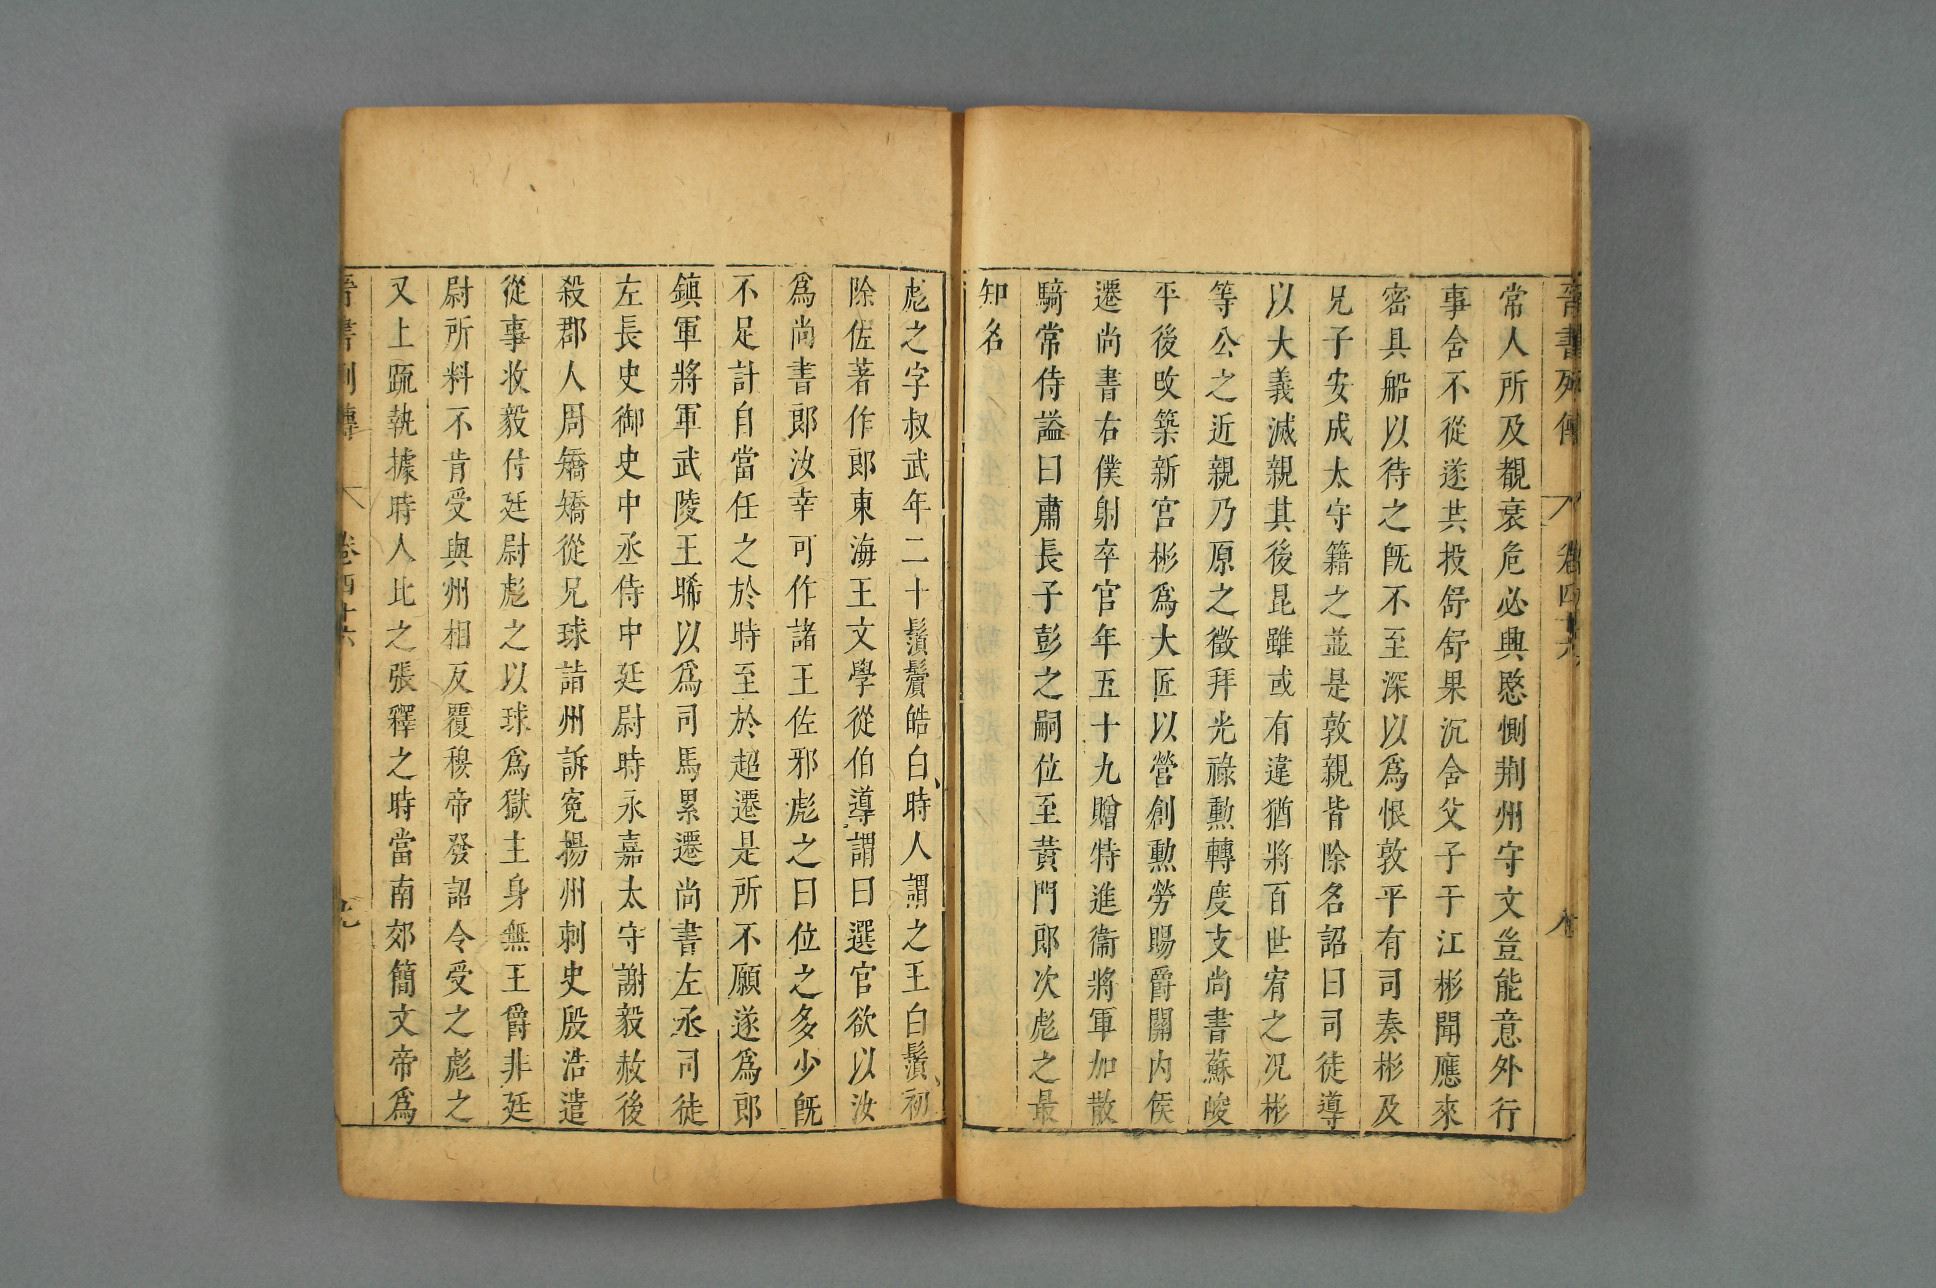 晉書列傳 卷四十六
常人所及覩衰危必興愍惻荆州守文豈能意外行
事舍不從遂共投舒舒果沉舍父子于江彬聞應來
密具船以待之旣不至深以爲恨敦平有司奏彬及
兄子安成太守籍之並是敦親皆除名詔曰司徒導
以大義滅親其後昆雖或有違猶將百世宥之况彬
等公之近親乃原之徵拜光祿勳轉度支尚書蘇峻
平後改築新宮彬爲大匠以營創勳勞賜爵關内侯
遷尚書右僕射卒官年五十九贈特進衞將軍加散
騎常侍謚曰肅長子彭之嗣位至黃門郎次彪之最
知名
彪之字叔武年二十鬚鬢皓白時人謂之王白鬚初
除佐著作郎東海王文學從伯導謂曰選官欲以汝
爲尚書郎汝幸可作諸王佐邪彪之曰位之多少旣
不足計自當任之於時至於超遷是所不願遂爲郎
鎮軍將軍武陵王晞以爲司馬累遷尚書左丞司徒
左長史御史中丞侍中廷尉時永嘉太守謝毅赦後
殺郡人周矯矯從兄球詣州訴寃揚州刺史殷浩遣
從事收毅付廷尉彪之以球爲獄主身無王爵非廷
尉所料不肯受與州相反覆穆帝發詔令受之彪之
又上疏執據時人比之張釋之時當南郊簡文帝爲
晉書列傳 卷四十六 九